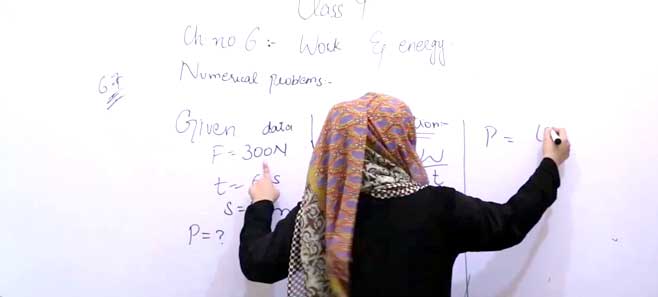 Class 9
Ch. no 6:- Work & energy.
Numerical problems:-
Given data
F = 300N
t = s
S =
P = ?
W
t
P =